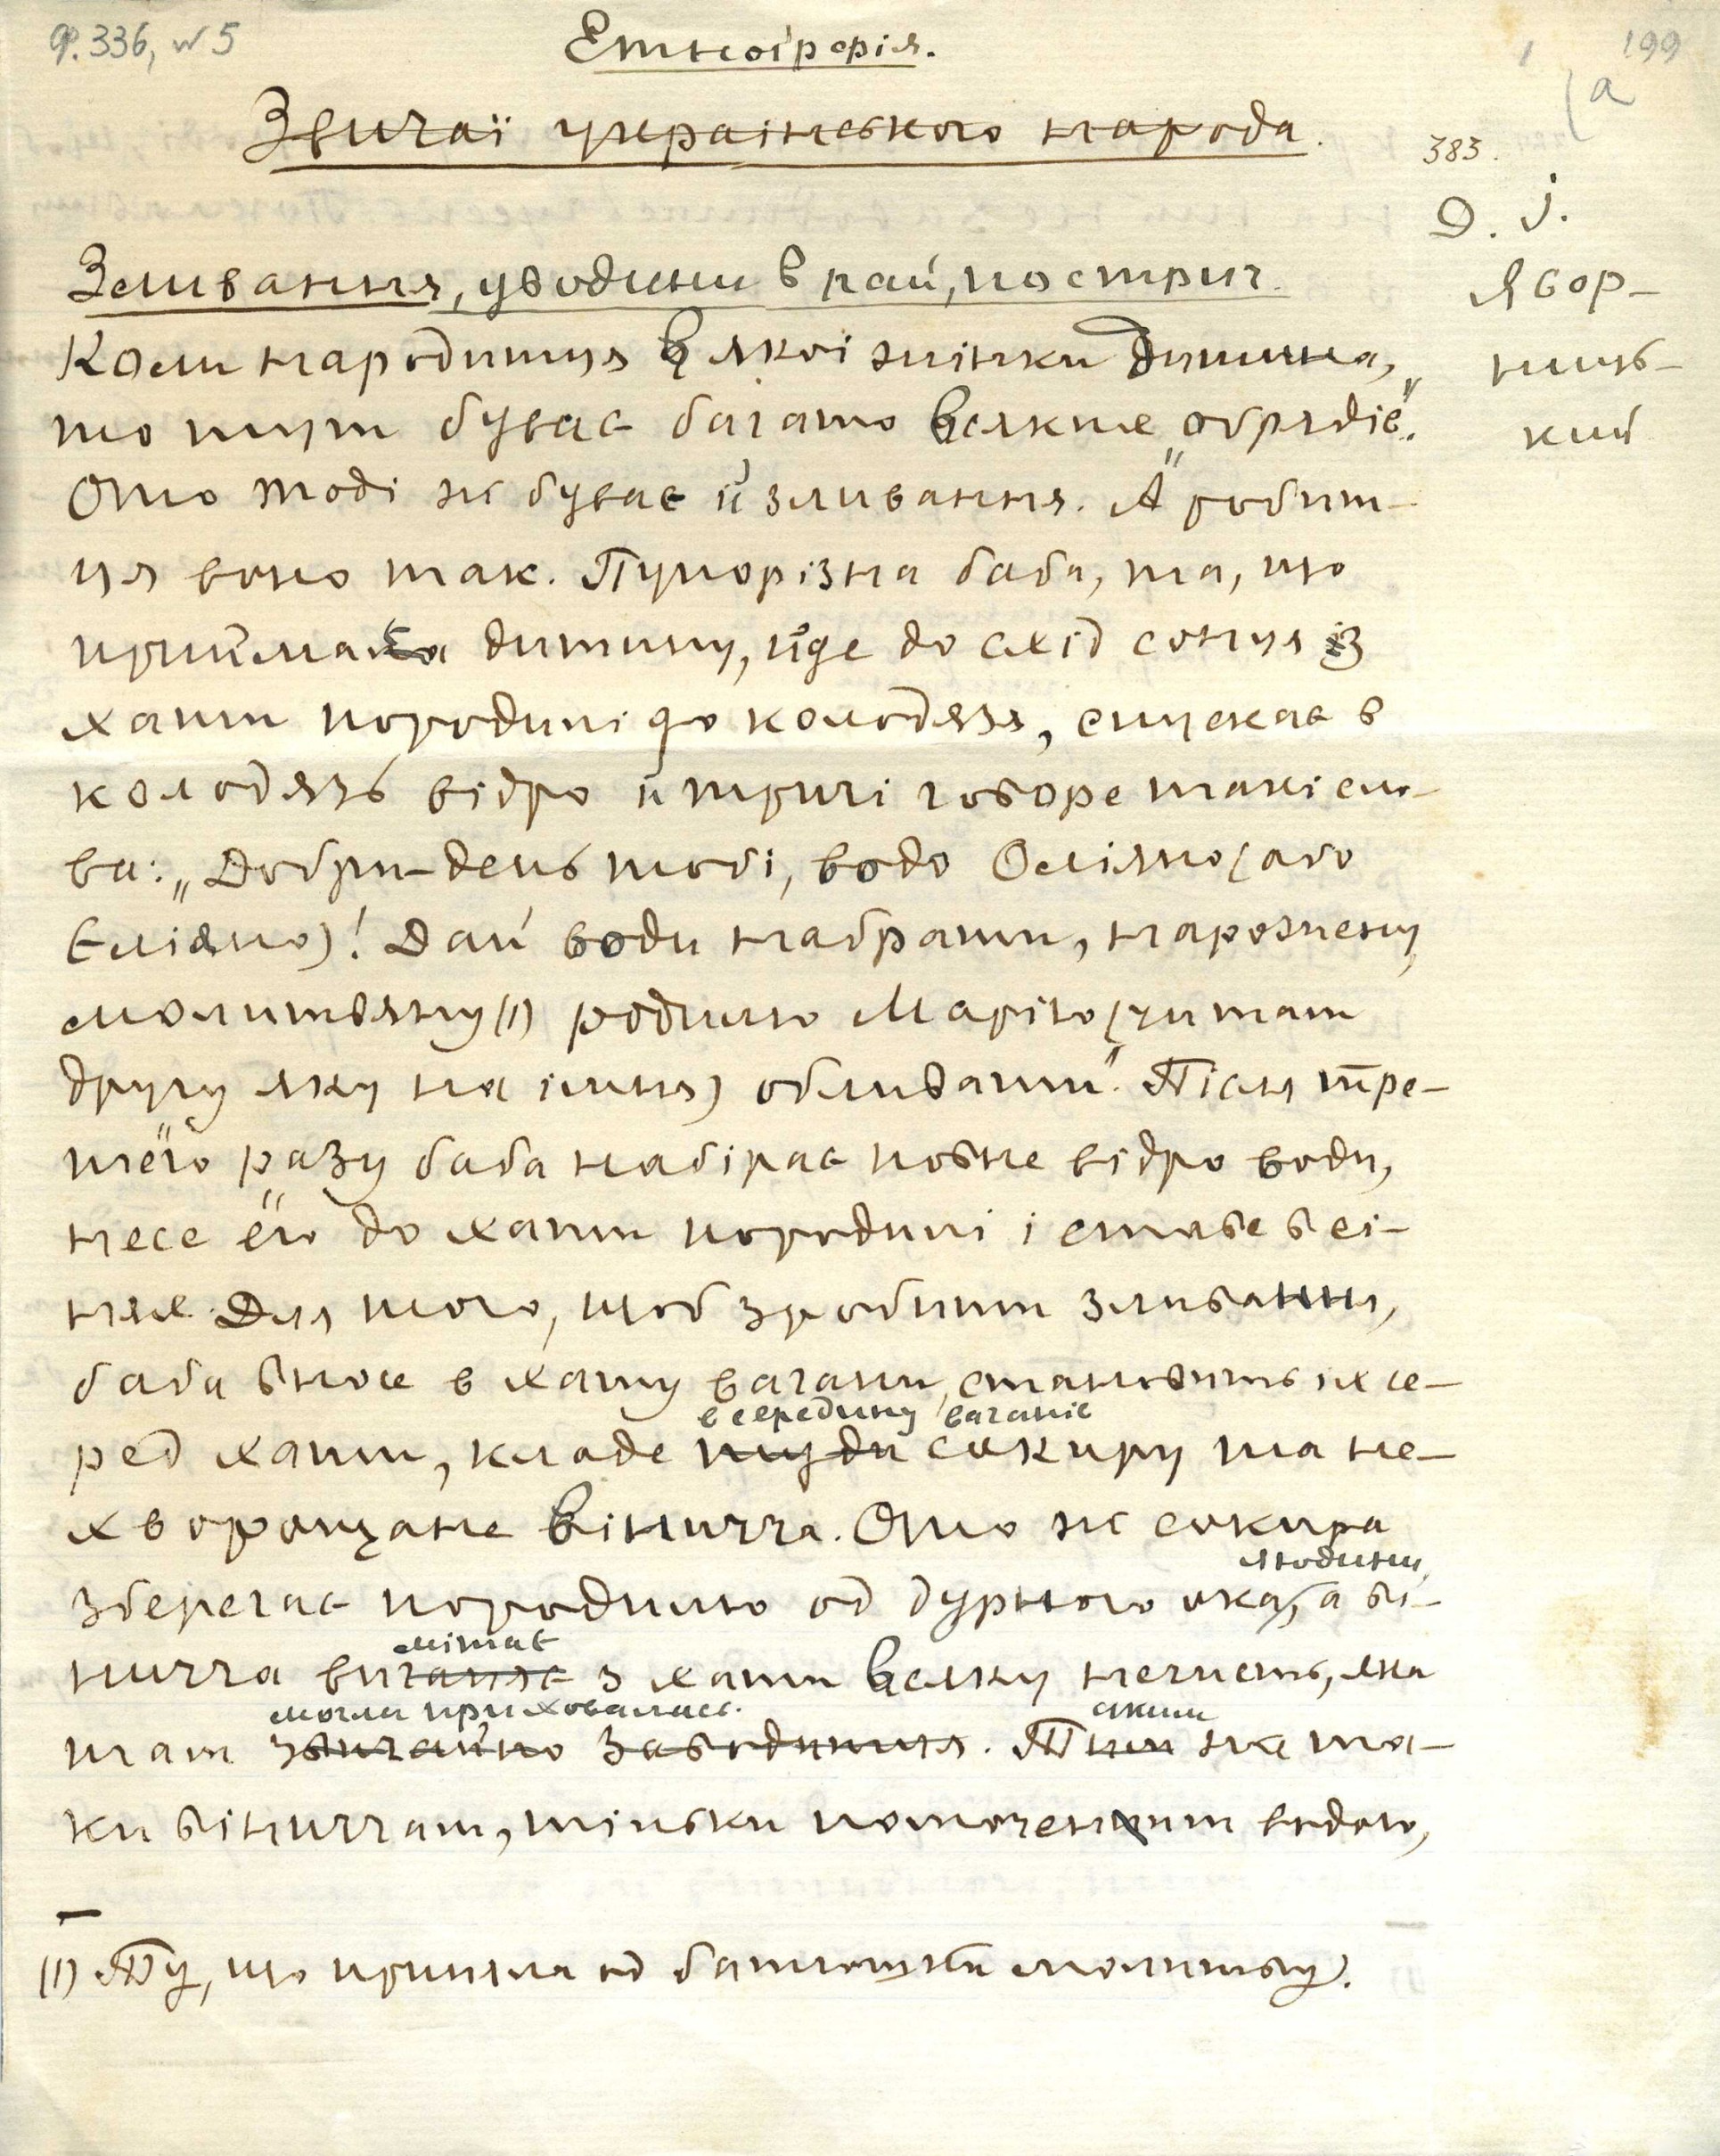 ф. 336, № 5
199
а
Етноґрафія.
Звичаї українського народа.
383.
Д. І.
Явор-
ниць-
кий
Зливання, уводини в рай, постриг.
Коли народитця в якоі жінки дитина,
то тут буває багато всяких „обрядів".
Ото тоді ж буває й зливання. А робит-
ця воно так. Пупорізна баба, та, що
приймає дитину, йде до схід сонця із
хати породілі до колодязя, спускає в
колодязь відро й тричі говоре такі сло-
ва: „Добри-день тобі, водо Оліяно (або
Єліяно)! Дай води набрати, нарожену,
молитвяну (1) родилю Марію (чи там
другу яку на імня) обливати". Після тре-
тёго разу баба набірає повне відро води,
несе ёго до хати породілі і ставе в сі-
нях. Для того, щоб зробити зливання,
баба вносе в хату вагани, становить іх се-
всередину ваганів
ред хати, кладе туди сокиру та не-
хворощане віничча. Ото ж сокира
людини,
зберегає породилю од дурного ока, а ві-
мітає
ничча виганяє з хати всяку нечисть, яка
могла приховатись.
там звичайно заводитця. Тим
таки віниччам, тільки помоченим водою,
(1) Ту, що приняла од батюшки молитву.